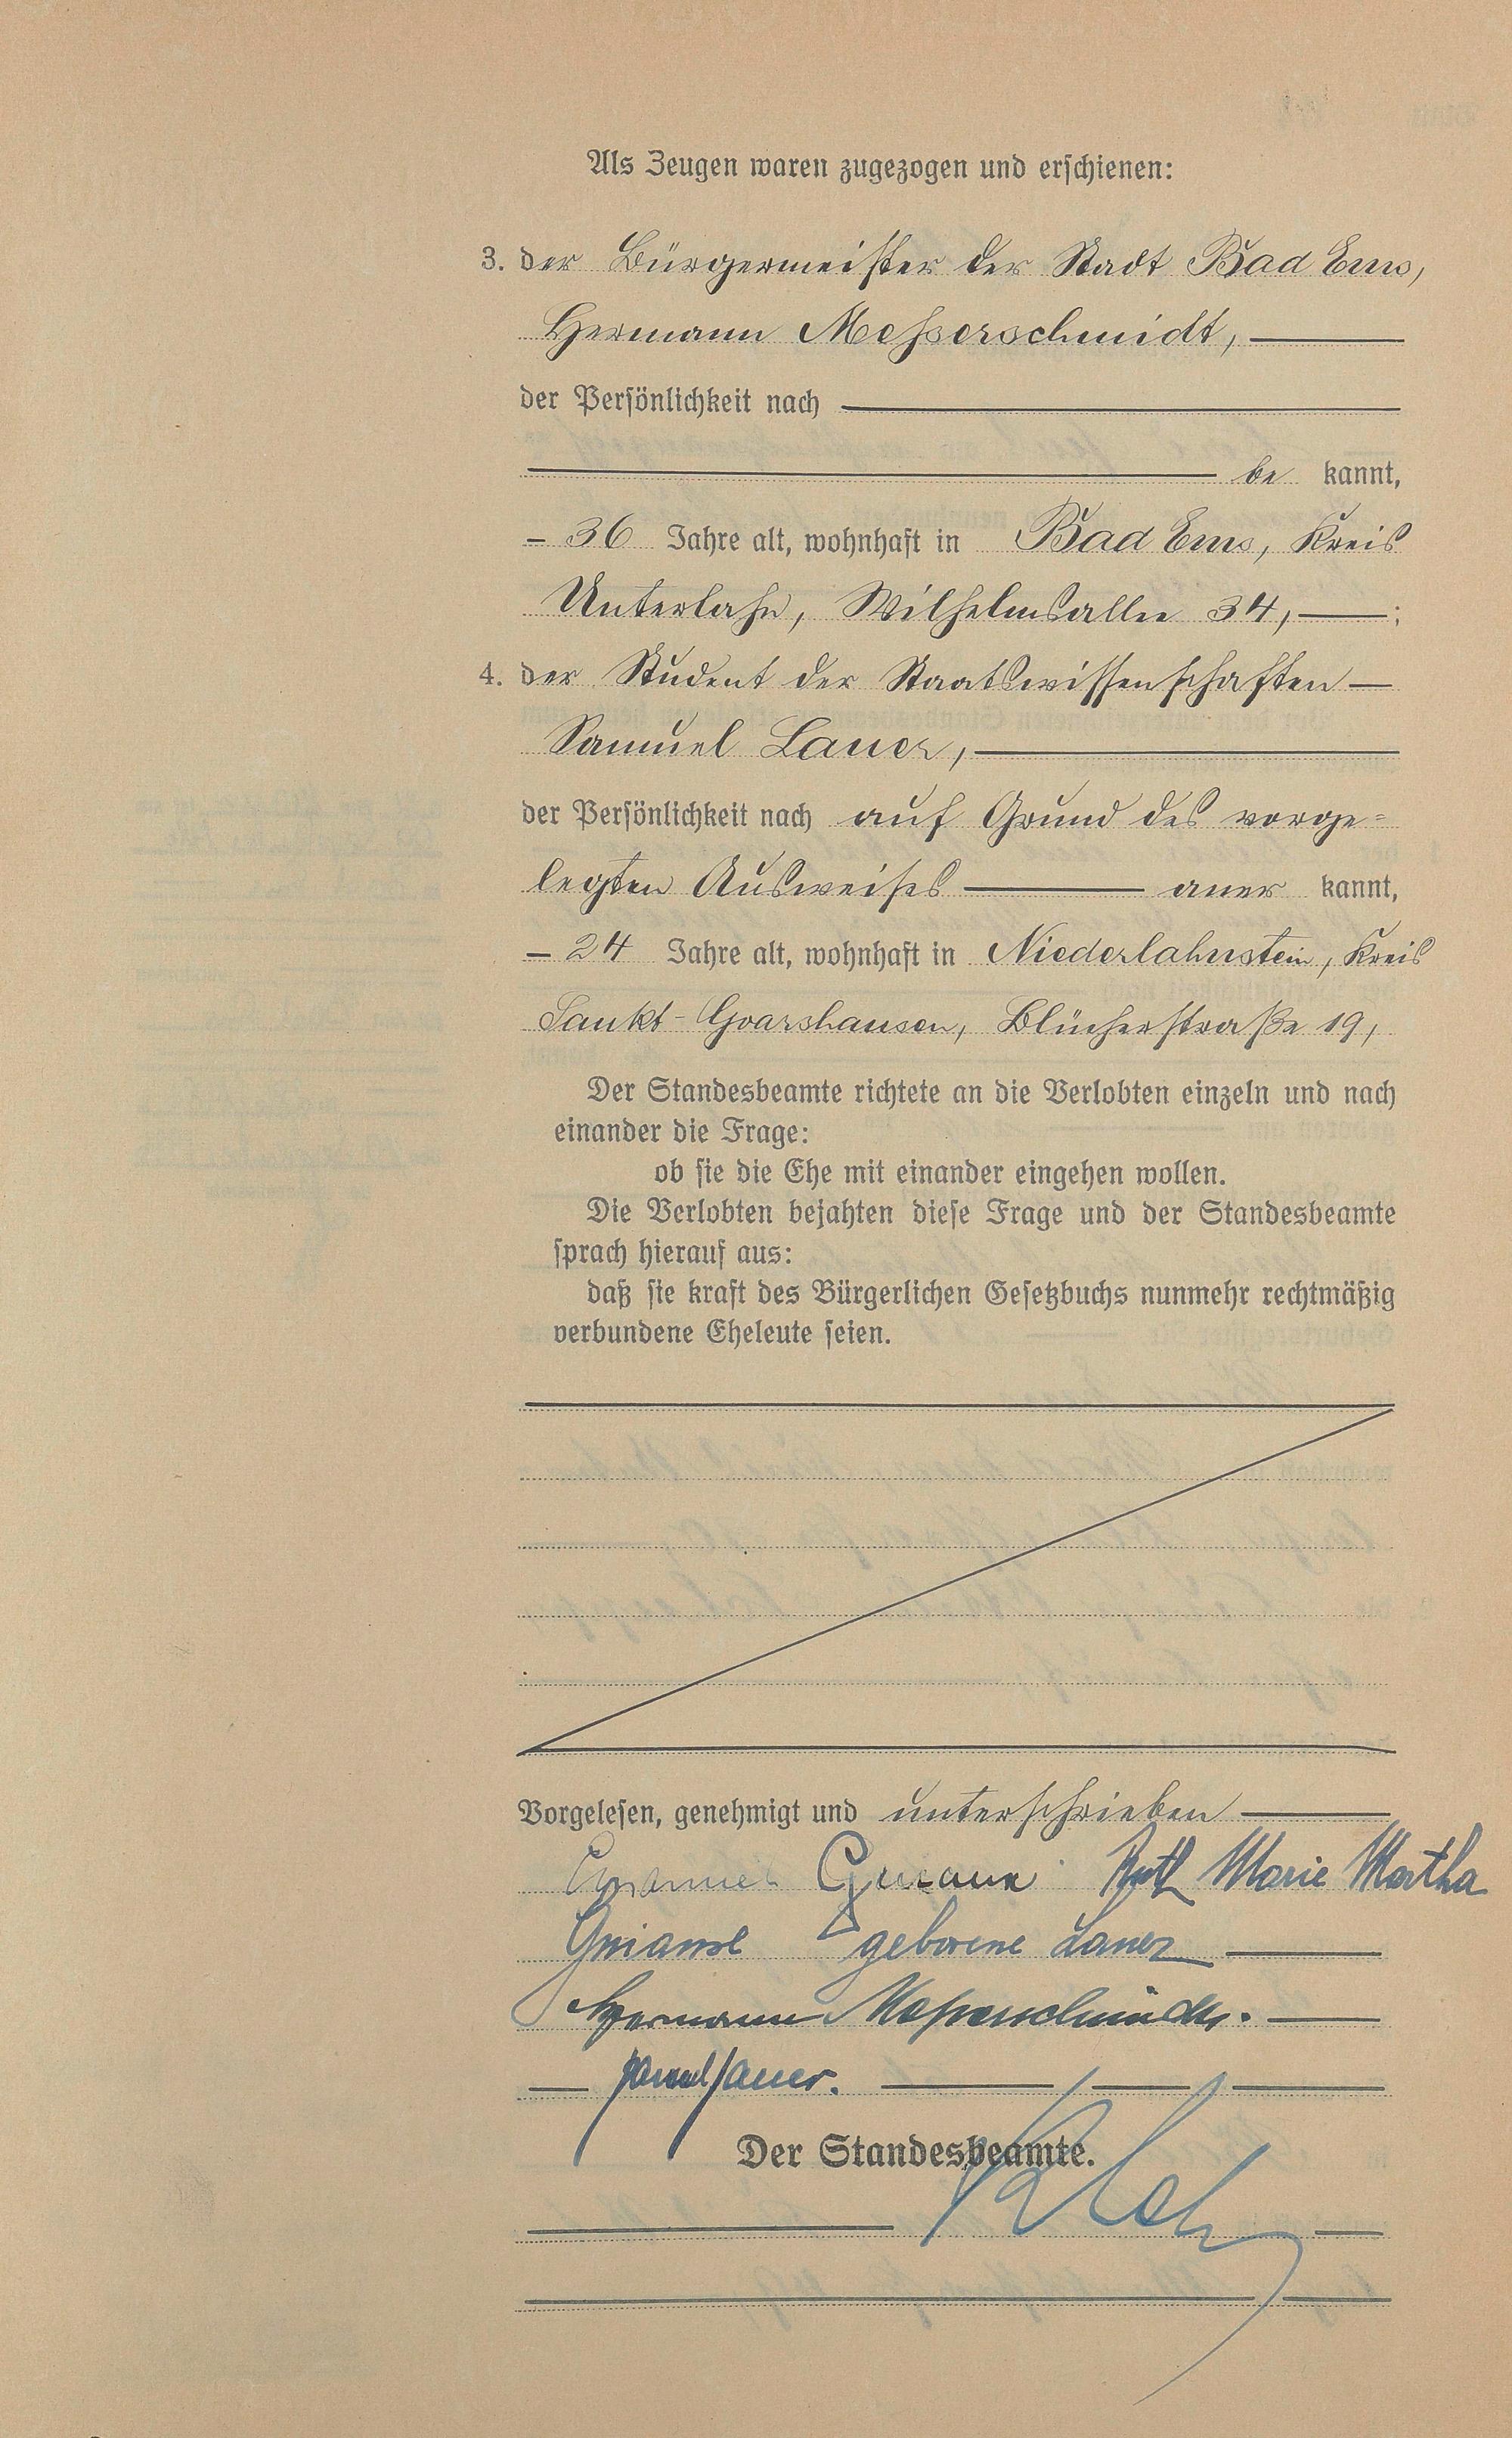 Als Zeugen waren zugezogen und erschienen:
3. der Bürgermeister der Stadt Bad Ems,
Hermann Messerschmidt,
der Persönlichkeit nach
be kannt,
36 Jahre alt, wohnhaft in Bad Ems, Kreis
Unterlahn, Wilhelmsallee 34, ;
4. der Student der Staatswissenschaften
Samuel Lauer,
der Persönlichkeit nach auf Grund des vorge=
legten Ausweises aner kannt,
24 Jahre alt, wohnhaft in Niederlahnstein, Kreis
Sankt-Goarshausen, Blücherstraße 19,
Der Standesbeamte richtete an die Verlobten einzeln und nach
einander die Frage:
ob sie die Ehe mit einander eingehen wollen.
Die Verlobten bejahten diese Frage und der Standesbeamte
sprach hierauf aus:
daß sie kraft des Bürgerlichen Gesetzbuchs nunmehr rechtmäßig
verbundene Eheleute seien.
Vorgelesen, genehmigt und unterschrieben
Ruth Marie Martha
geborene Lauer
Hermann Messerschmidt.
Samuel Lauer.
Der Standesbeamte.